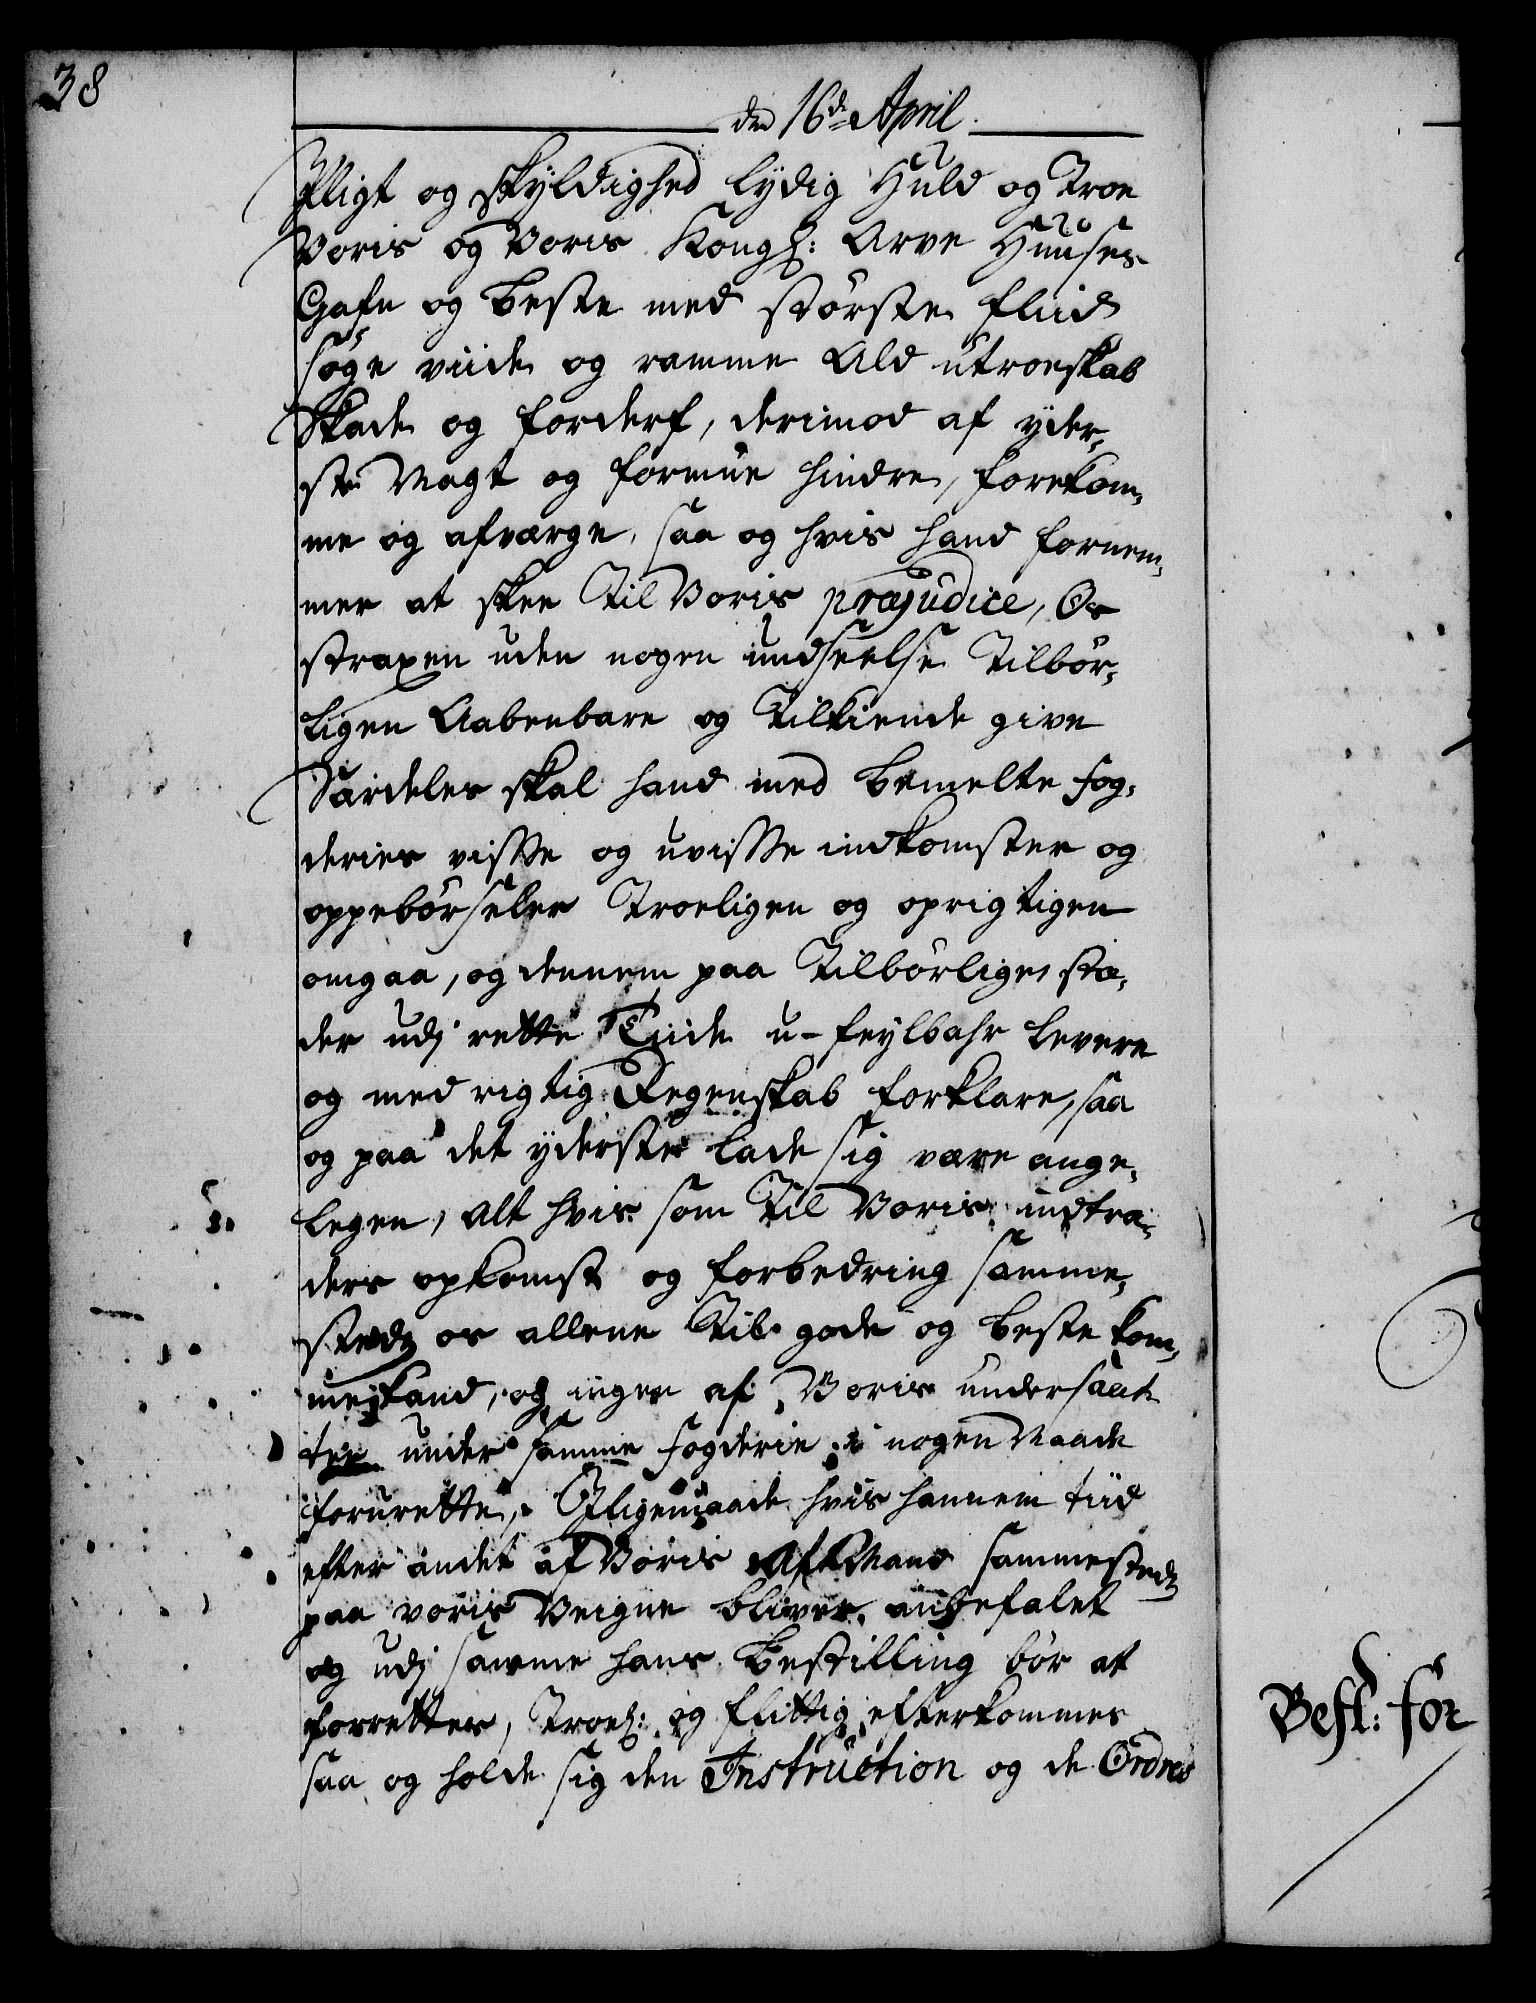 38
den 16de April.
Pligt og skyldighed lydig Huld og Troe
Voris og Voris Kongl: Arve Huuses
Gafn og beste med største fliid
søge viide og ramme Ald utroeskab
Skade og forderf, derimod af yder,
ste Magt og formue hindre, forekom,
me og afværge, saa og hvis hand fornem,
mer at skee Til Voris præjudice, Os
straxen uden nogen undseelse Tilbør,
ligen Aabenbare og Tilkiende give
Særdeles skal hand med bemelte fog,
deries visse og uvisse indkomster og
oppebørseler Troeligen og oprigtigen
omgaa, og dennem paa Tilbørlige stæ,
der udj rette Tiide u-feylbahr levere
og med rigtig Regenskab forklare, saa
og paa det yderste lade sig være ange,
legen, alt hvis som Til Voris indtra,
ders opkomst og forbedring samme,
stedz os allene Til gode og beste kom,
me kand, og ingen af Voris undersaat
ter under samme fogderie i nogen Maade
forurette, Jligemaade hvis hannem tiid
efter andet af Voris Amtmand sammestedz
paa voris Veigne bliver anbefalet
og udj samme hans bestilling bør at
forrettes, Troel: og flittig efterkommes
saa og holde sig den Instruction og de Ordres
Best: for